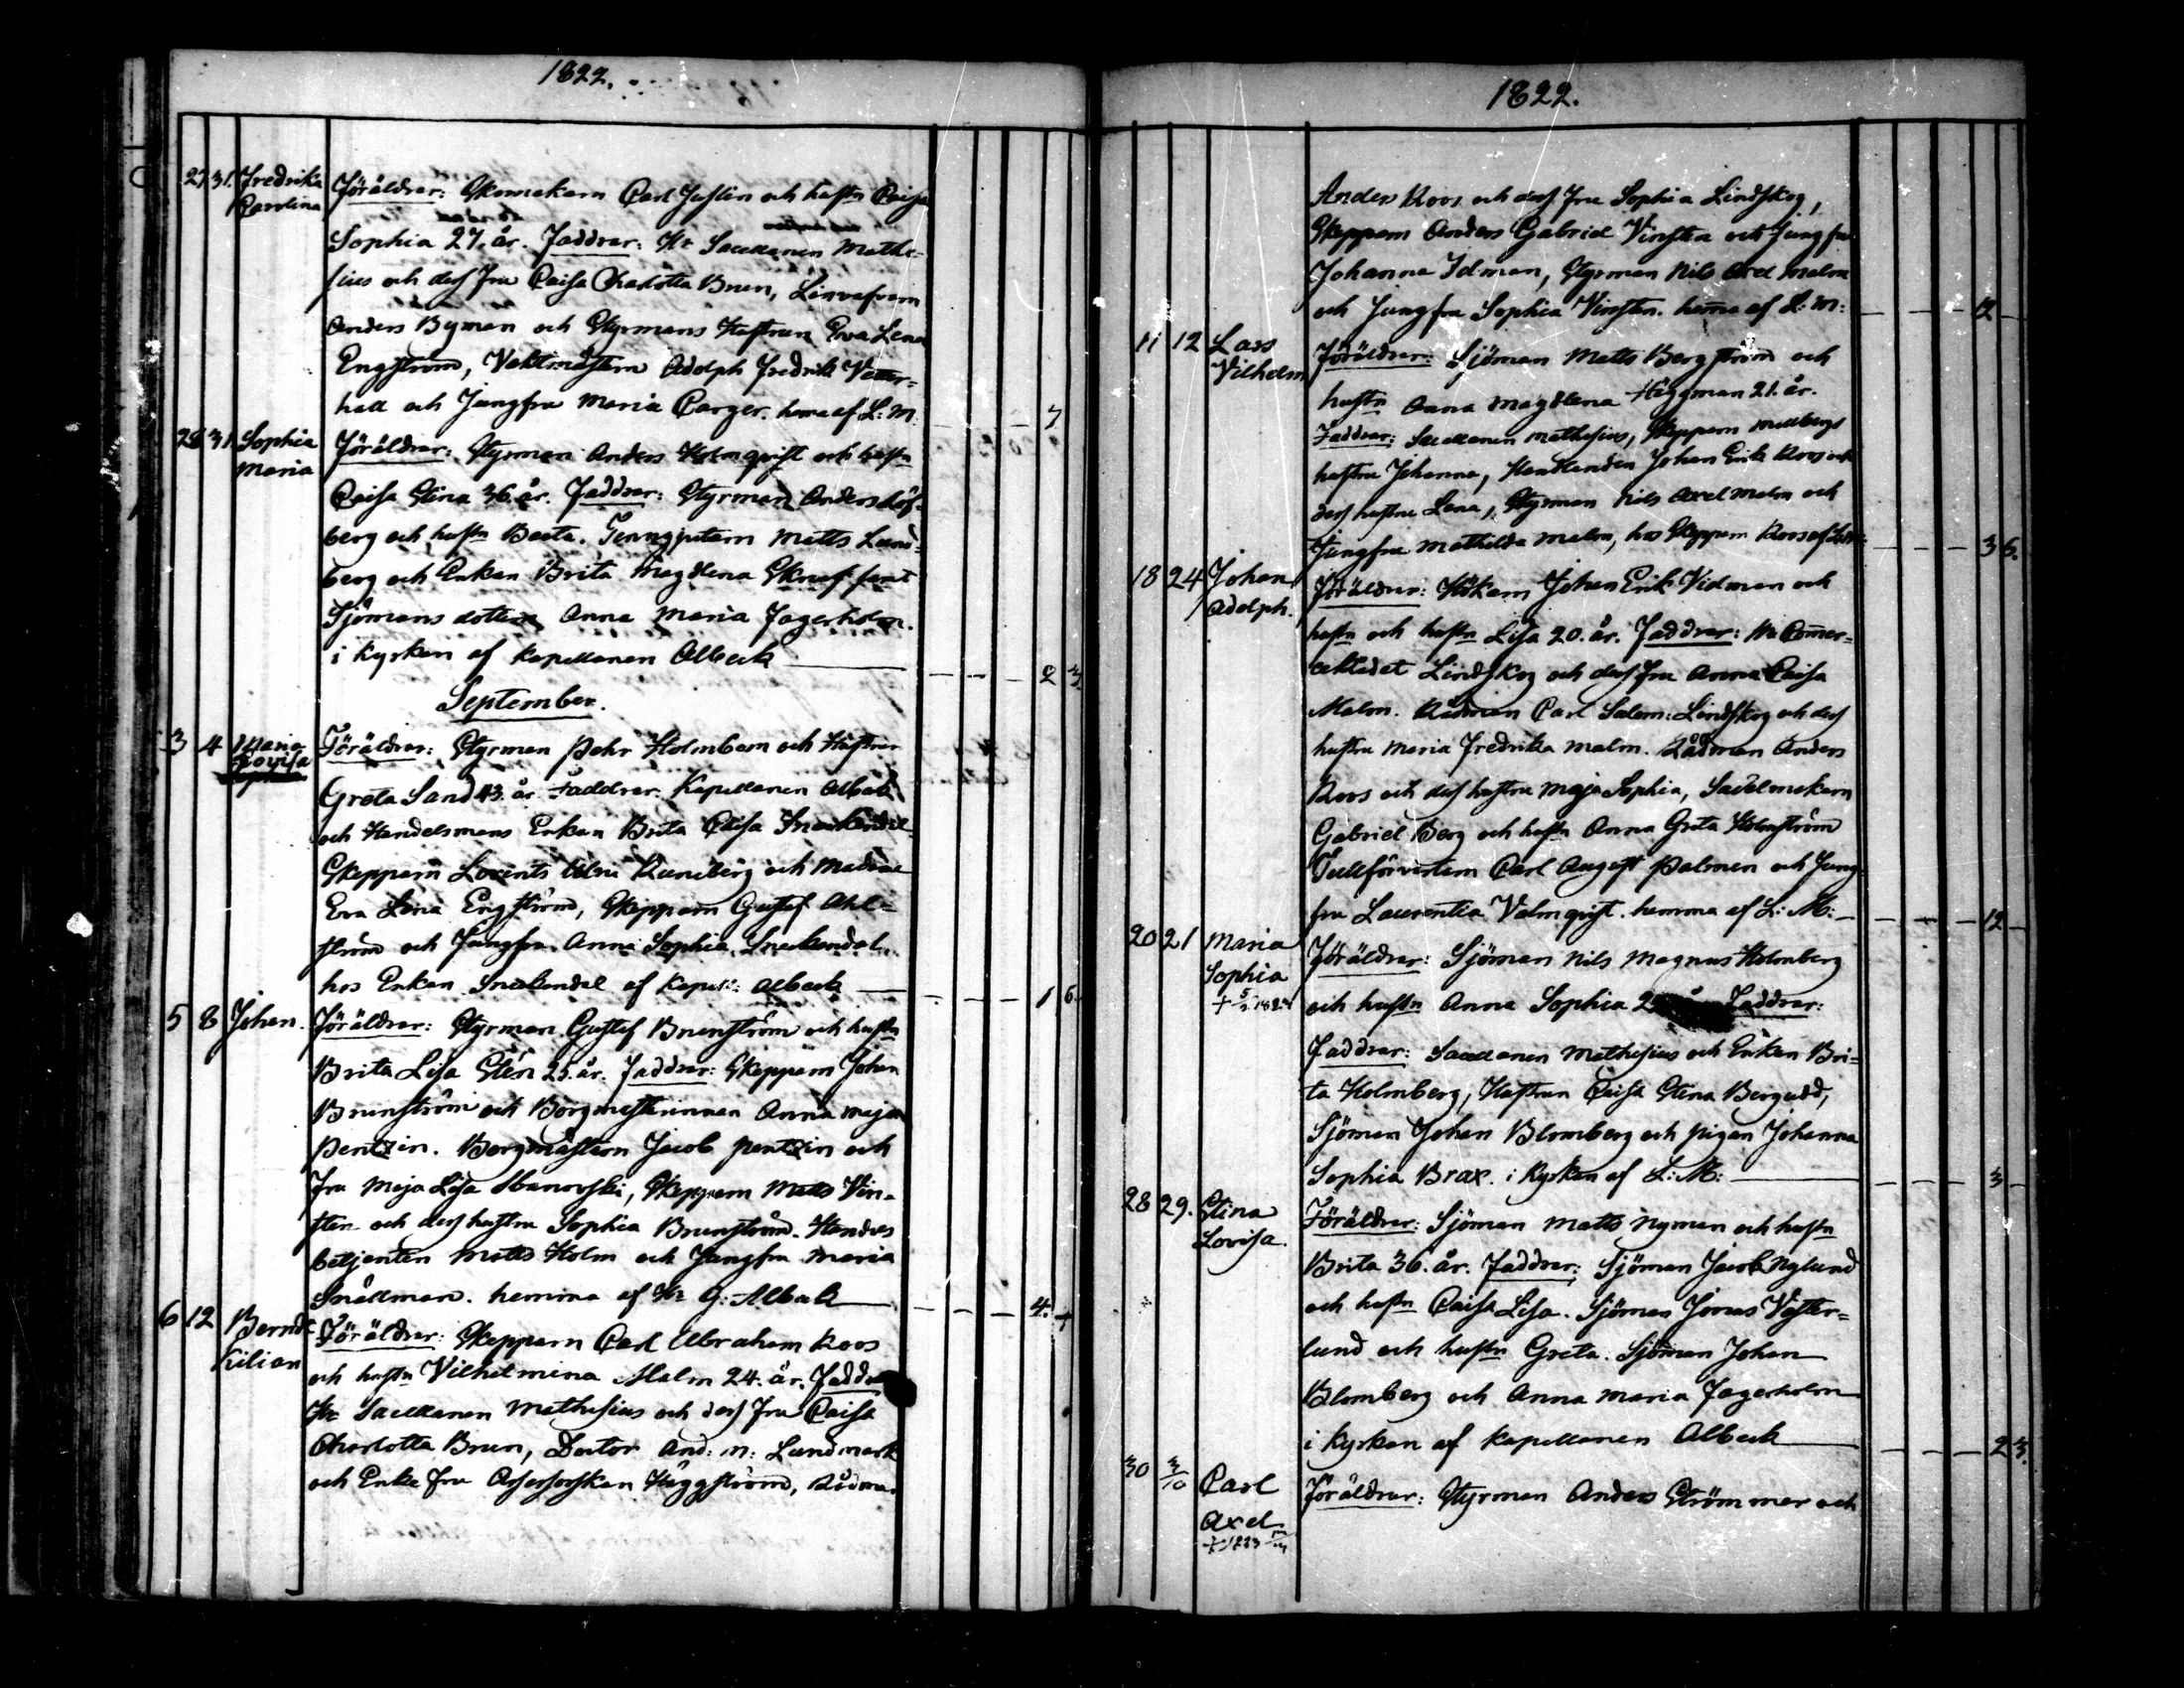 1822.
27 31. Fredrika Carolina
Föräldrar: Skomakarn Carl Juslin och hustn Caisa
Sophia 27. år. Faddrar: Hr Sacellanen Mathe=
sius och dess fru Caisa Charlotta Brun,
Anders Byman och Styrmans Hustrun Eva Lena
Engström, Vaktmästarn Adolph Fredrik Vetter=
hall och Jungfru Maria Carger. hema af L: M. 7
28 31. Sophia Maria
Föräldrar: Styrman Anders Holmqvist och hustn
Caisa Stina 36. år. Faddrar: Styrman Anders Löf=
berg och hustn Beata. Tenngjutarn Matts Lund=
berg och Enkan Brita Magdlena samt
Sjömans dottern Anna Maria Fagerholm.
i Kyrkan af Kapellanen Alback 2 3.
September.
3 4 Maria Lovisa
Föräldrar: Styrman Pehr Holmbom och Hustrun
Greta Sand 43. år. Faddrar. Kapellanen Alback
och Handelsmans Enkan Brita Caisa Sneckendal
Skepparn Lorents Ulric Runeberg och Madame
Eva Lena Engström, Skepparn Gustaf Ahl=
ström och Jungfru Anna Sophia Sneckendal.
hos Enkan Sneckendal af Kapell: Alback 1 6.
5 8 Johan.
Föräldrar: Styrman Gustaf Brunström och hustn
Brita Lisa Stén 25. år. Faddrar: Skepparn Johan
Brunström och Borgmästarinnan Anna Maja
Pentzin. Borgmästarn Jacob Pentzin och
fru Maja Lisa Skepparn Matts Vin=
sten och dess hustru Sophia Brunström. Handels
betjenten Matts Holm och Jungfru Maria
Snällman. hemma af Hr G: Alback 4.
6 12 Berndt Kilian
Föräldrar: Skepparn Carl Abraham Roos
och hustn Vilhelmina Malm 24. år. Faddrar
Hr Sacellanen Mathesius och dess fru Caisa
Charlotta Brun, Doctor And: N: Lundmark
och Enke fru Assessorskan Häggström, Rådman
1822.
Anders Roos och dess fru Sophia Lindskog,
Skepparn Anders Gabriel Vinsten och Jungfru
Johanna Idman, Styrman Nils Axel Malm
och Jungfru Sophia Vinsten. hema af L: M: 12
11 12 Lars Vilhelm
Föräldrar: Sjöman Matts Bergström och
hustn Anna Magdlena Häggman 21. år.
Faddrar: Sacellanen Mathesius, Skepparn
hustru Johanna, Handlanden Johan Erik Roos och
dess hustru Lena, Styrman Nils Axel Malm och
Jungfru Mathilda Malm, hos Skepparn Roos af L:M: 3 6.
18 24 Johan Adolph.
Föräldrar: Hökarn Johan Erik Vidman och
hustn och hustn Lisa 20. år. Faddrar: Hr Comer=
cerådet Lindskog och dess fru Anna Caisa
Malm. Rådman Carl Salom: Lindskog och dess
hustru Maria Fredrika Malm. Rådman Anders
Roos och dess hustru Maja Sophia, Sadelmakarn
Gabriel Berg och hustn Anna Greta Holmström
Tullförvaltarn Carl August Palmen och Jung
fru Laurentia Valmqvist. hemma af L: M: 12
20 21 Maria Sophia
Föräldrar: Sjöman Nils Magnus Holmberg
och hustn Anna Sophia Faddrar:
Faddrar: Sacellanen Mathesius och Enkan Bri=
ta Holmberg, Hustrun Caisa Stina Bergudd,
Sjöman Johan Blomberg och pigan Johanna
Sophia Brax. i Kyrkan af L: M: 3
28 29. Stina Lovisa.
Föräldrar: Sjöman Matts Nyman och hustn
Brita 36. år. Faddrar: Sjöman Jacob Nylund
och hustn Caisa Lisa. Sjöman Jonas Vester=
lund och hustn Greta. Sjöman Johan
Blomberg och Anna Maria Fagerholm
i Kyrkan af Kapellanen Alback 2 3.
30 3/10 Carl Axel
Föräldrar: Styrman Anders Strömmer och